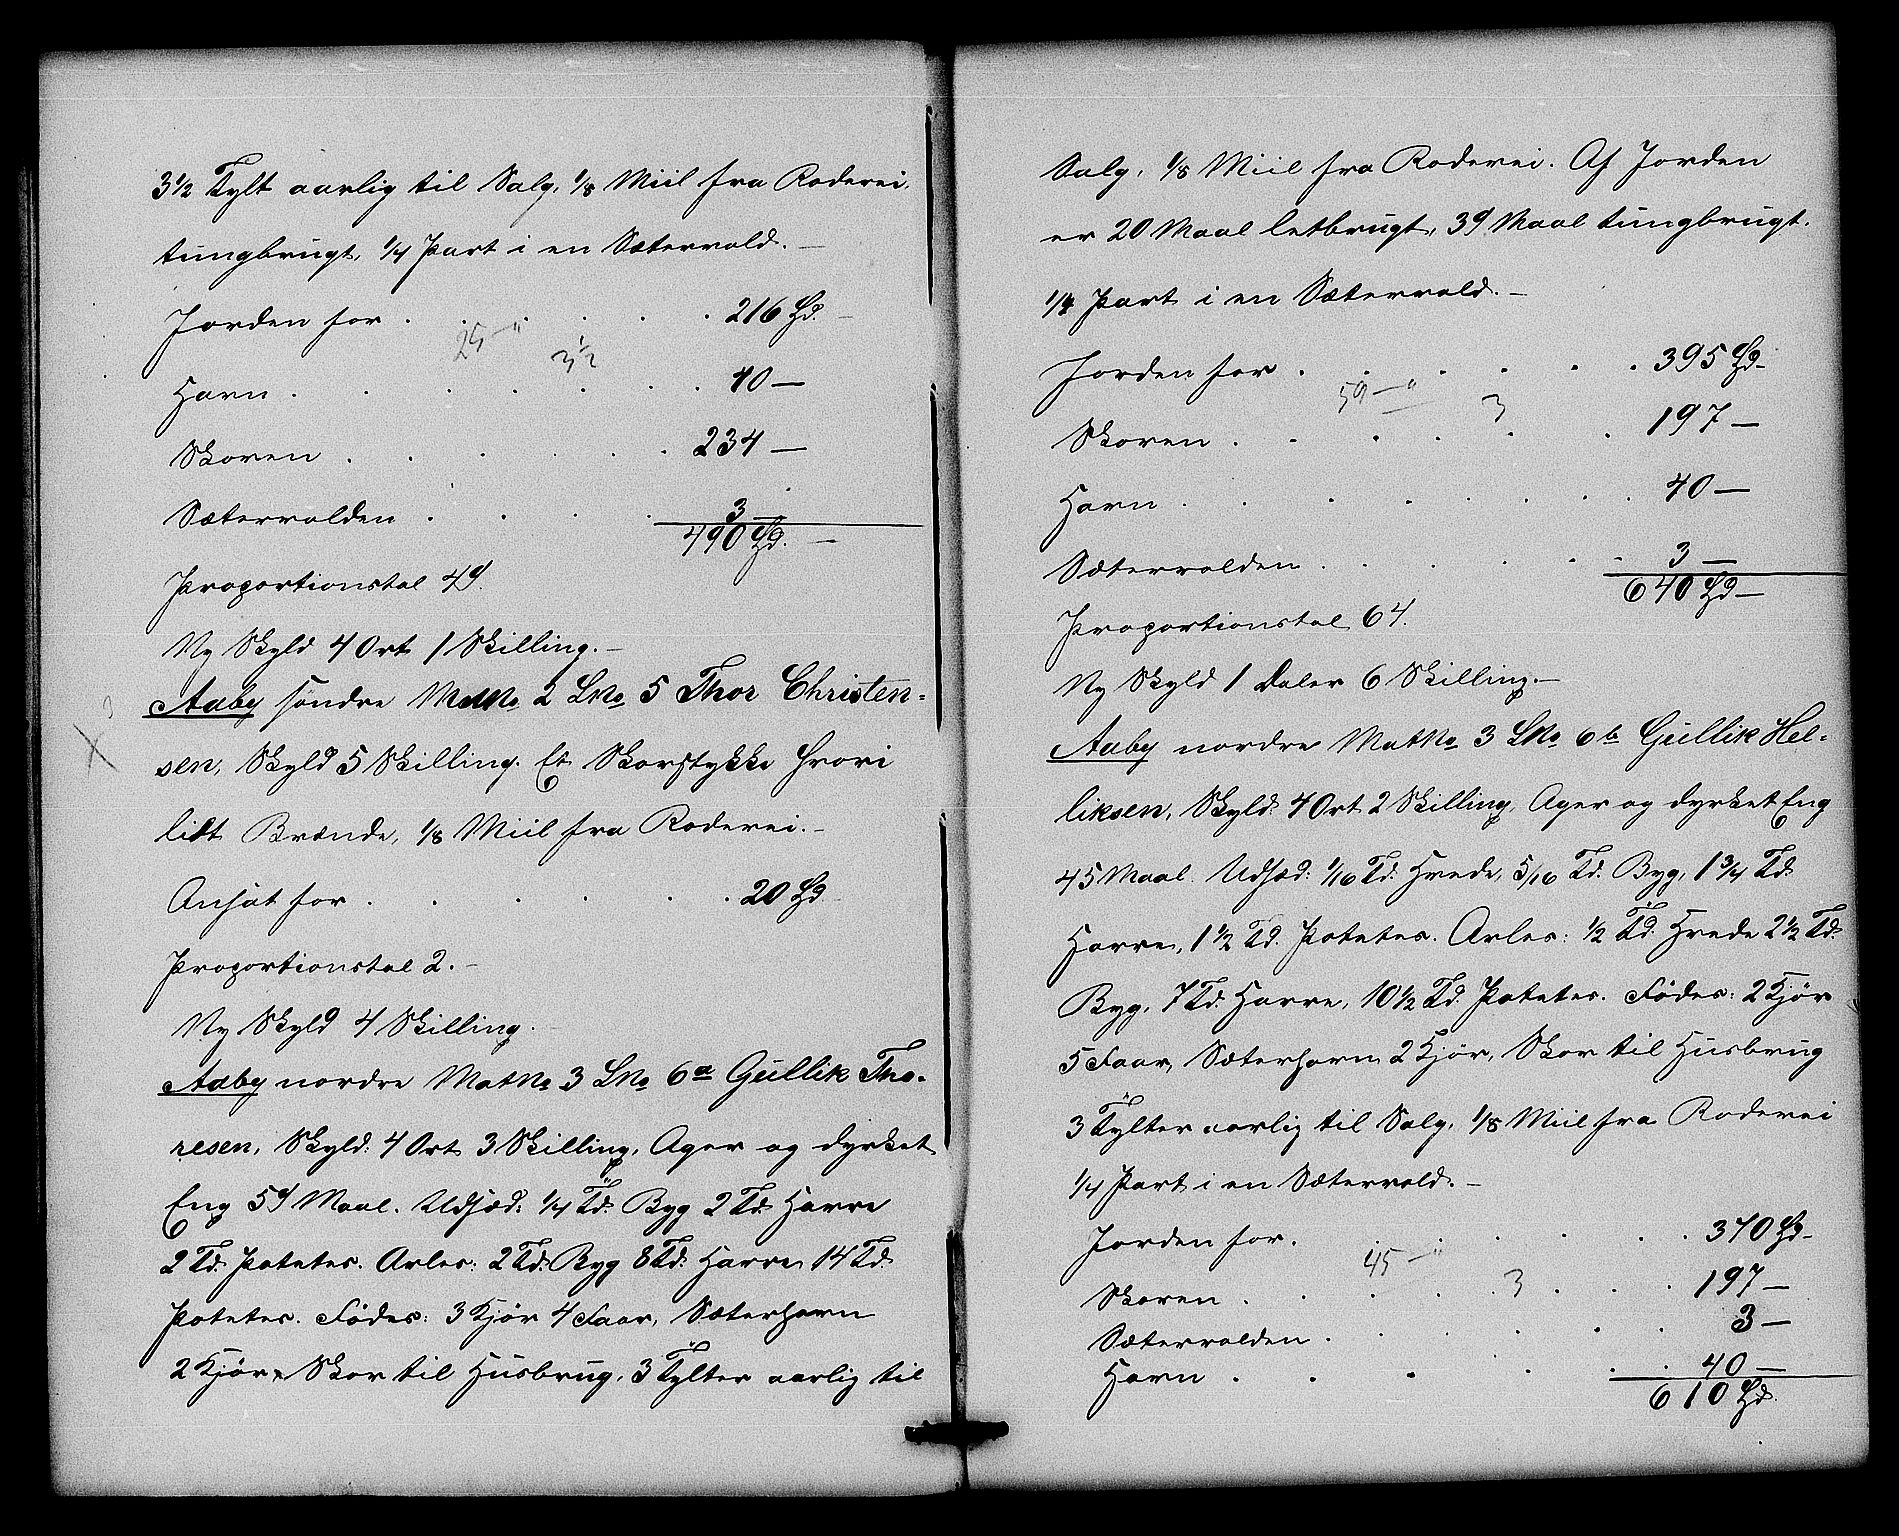 3½ Tylt aarlig til Salg, ⅛ Miil fra Rodevei,
tungbrugt, ¼ Part i en Sætervold. —
Jorden for . . . . . . 216 Spd. —
25 — " 3½
Havn . . . . . . . 40 —
Skoven . . . . . . 234 —
Sætervolden . . . . . 3 —
490 Spd. —
Proportionstal 49.
Ny Skyld 4 Ort 1 Skilling. —
Aaby søndre MatNo 2 LNo 5 Thor Christen-
sen, Skyld 5 Skilling. Et Skovstykke hvori
lidt Brænde, ⅛ Miil fra Rodevei. —
Ansat for . . . . . . 20 Spd
Proportionstal 2. —
Ny Skyld 4 Skilling. —
Aaby nordre MatNo 3 LNo 6a Gullik Tho-
resen, Skyld: 4 Ort 3 Skilling, Ager og dyrket
Eng 59 Maal. Udsæd: ¼ Td. Byg 2 Td. Havre
2 Td. Potetes. Avles: 2 Td. Byg 8 Td. Havre 14 Td.
Potetes. Födes: 3 Kjör 4 Faar, Sæterhavn
2 Kjör, Skov til Husbrug, 3 Tylter aarlig til
Salg, ⅛ Miil fra Rodevei. Af Jorden
er 20 Maal letbrugt, 39 Maal tungbrugt.
¼ Part i en Sætervold. —
Jorden for . . . . . . 395 Spd —
59 — " 3
Skoven . . . . . . 197 —
Havn . . . . . . . 40 —
Sætervolden . . . . . 3 —
640 Spd —
Proportionstal 64.
Ny Skyld 1 Daler 6 Skilling. —
Aaby nordre MatNo 3 LNo 6b Gullik Hel-
liksen, Skyld: 4 Ort 2 Skilling, Ager og dyrket Eng
45 Maal. Udsæd: 1/16 Td. Hvede, 5/16 Td. Byg, 1¾ Td.
Havre, 1½ Td. Potetes. Avles: ½ Td. Hvede 2½ Td.
Byg, 7 Td. Havre, 10½ Td. Potetes. Födes: 2 Kjör
5 Faar, Sæterhavn 2 Kjör, Skov til Husbrug
3 Tylter aarlig til Salg, ⅛ Miil fra Rodevei
¼ Part i en Sætervold. —
Jorden for. . . . . . . 370 Spd —
45 — " 3
Skoven . . . . . . 197 —
Sætervolden . . . . . . 3 —
Havn . . . . . . . 40 —
610 Spd.